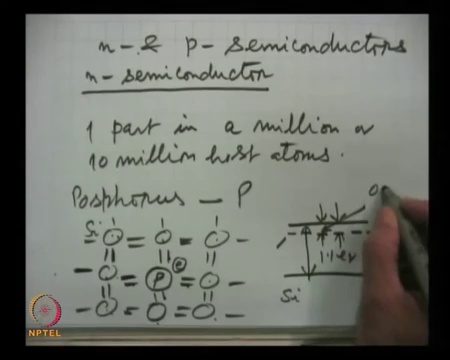 n- & p- semiconductors
n- semiconductor
1 part in a million or
10 million host atoms.
Posphorus - P
Si
P
e
1.1 eV
Si
0
NPTEL